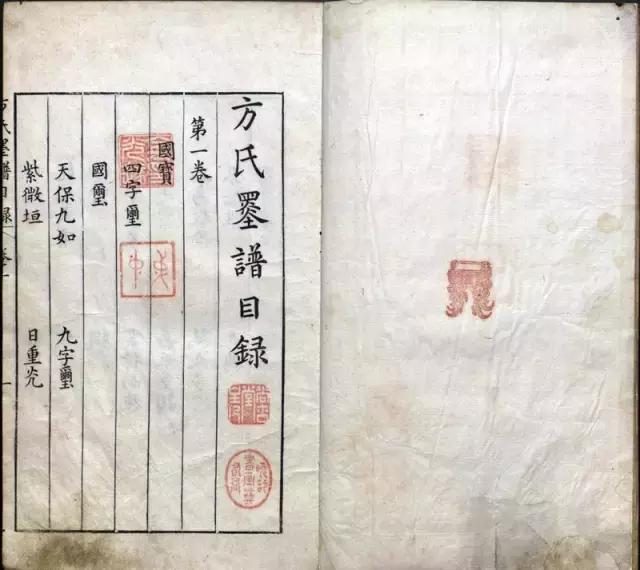 方氏墨譜目録
第一卷
國寶
四字璽
國璽
天保九如
九字璽
紫微垣
日重光
方氏墨譜目録